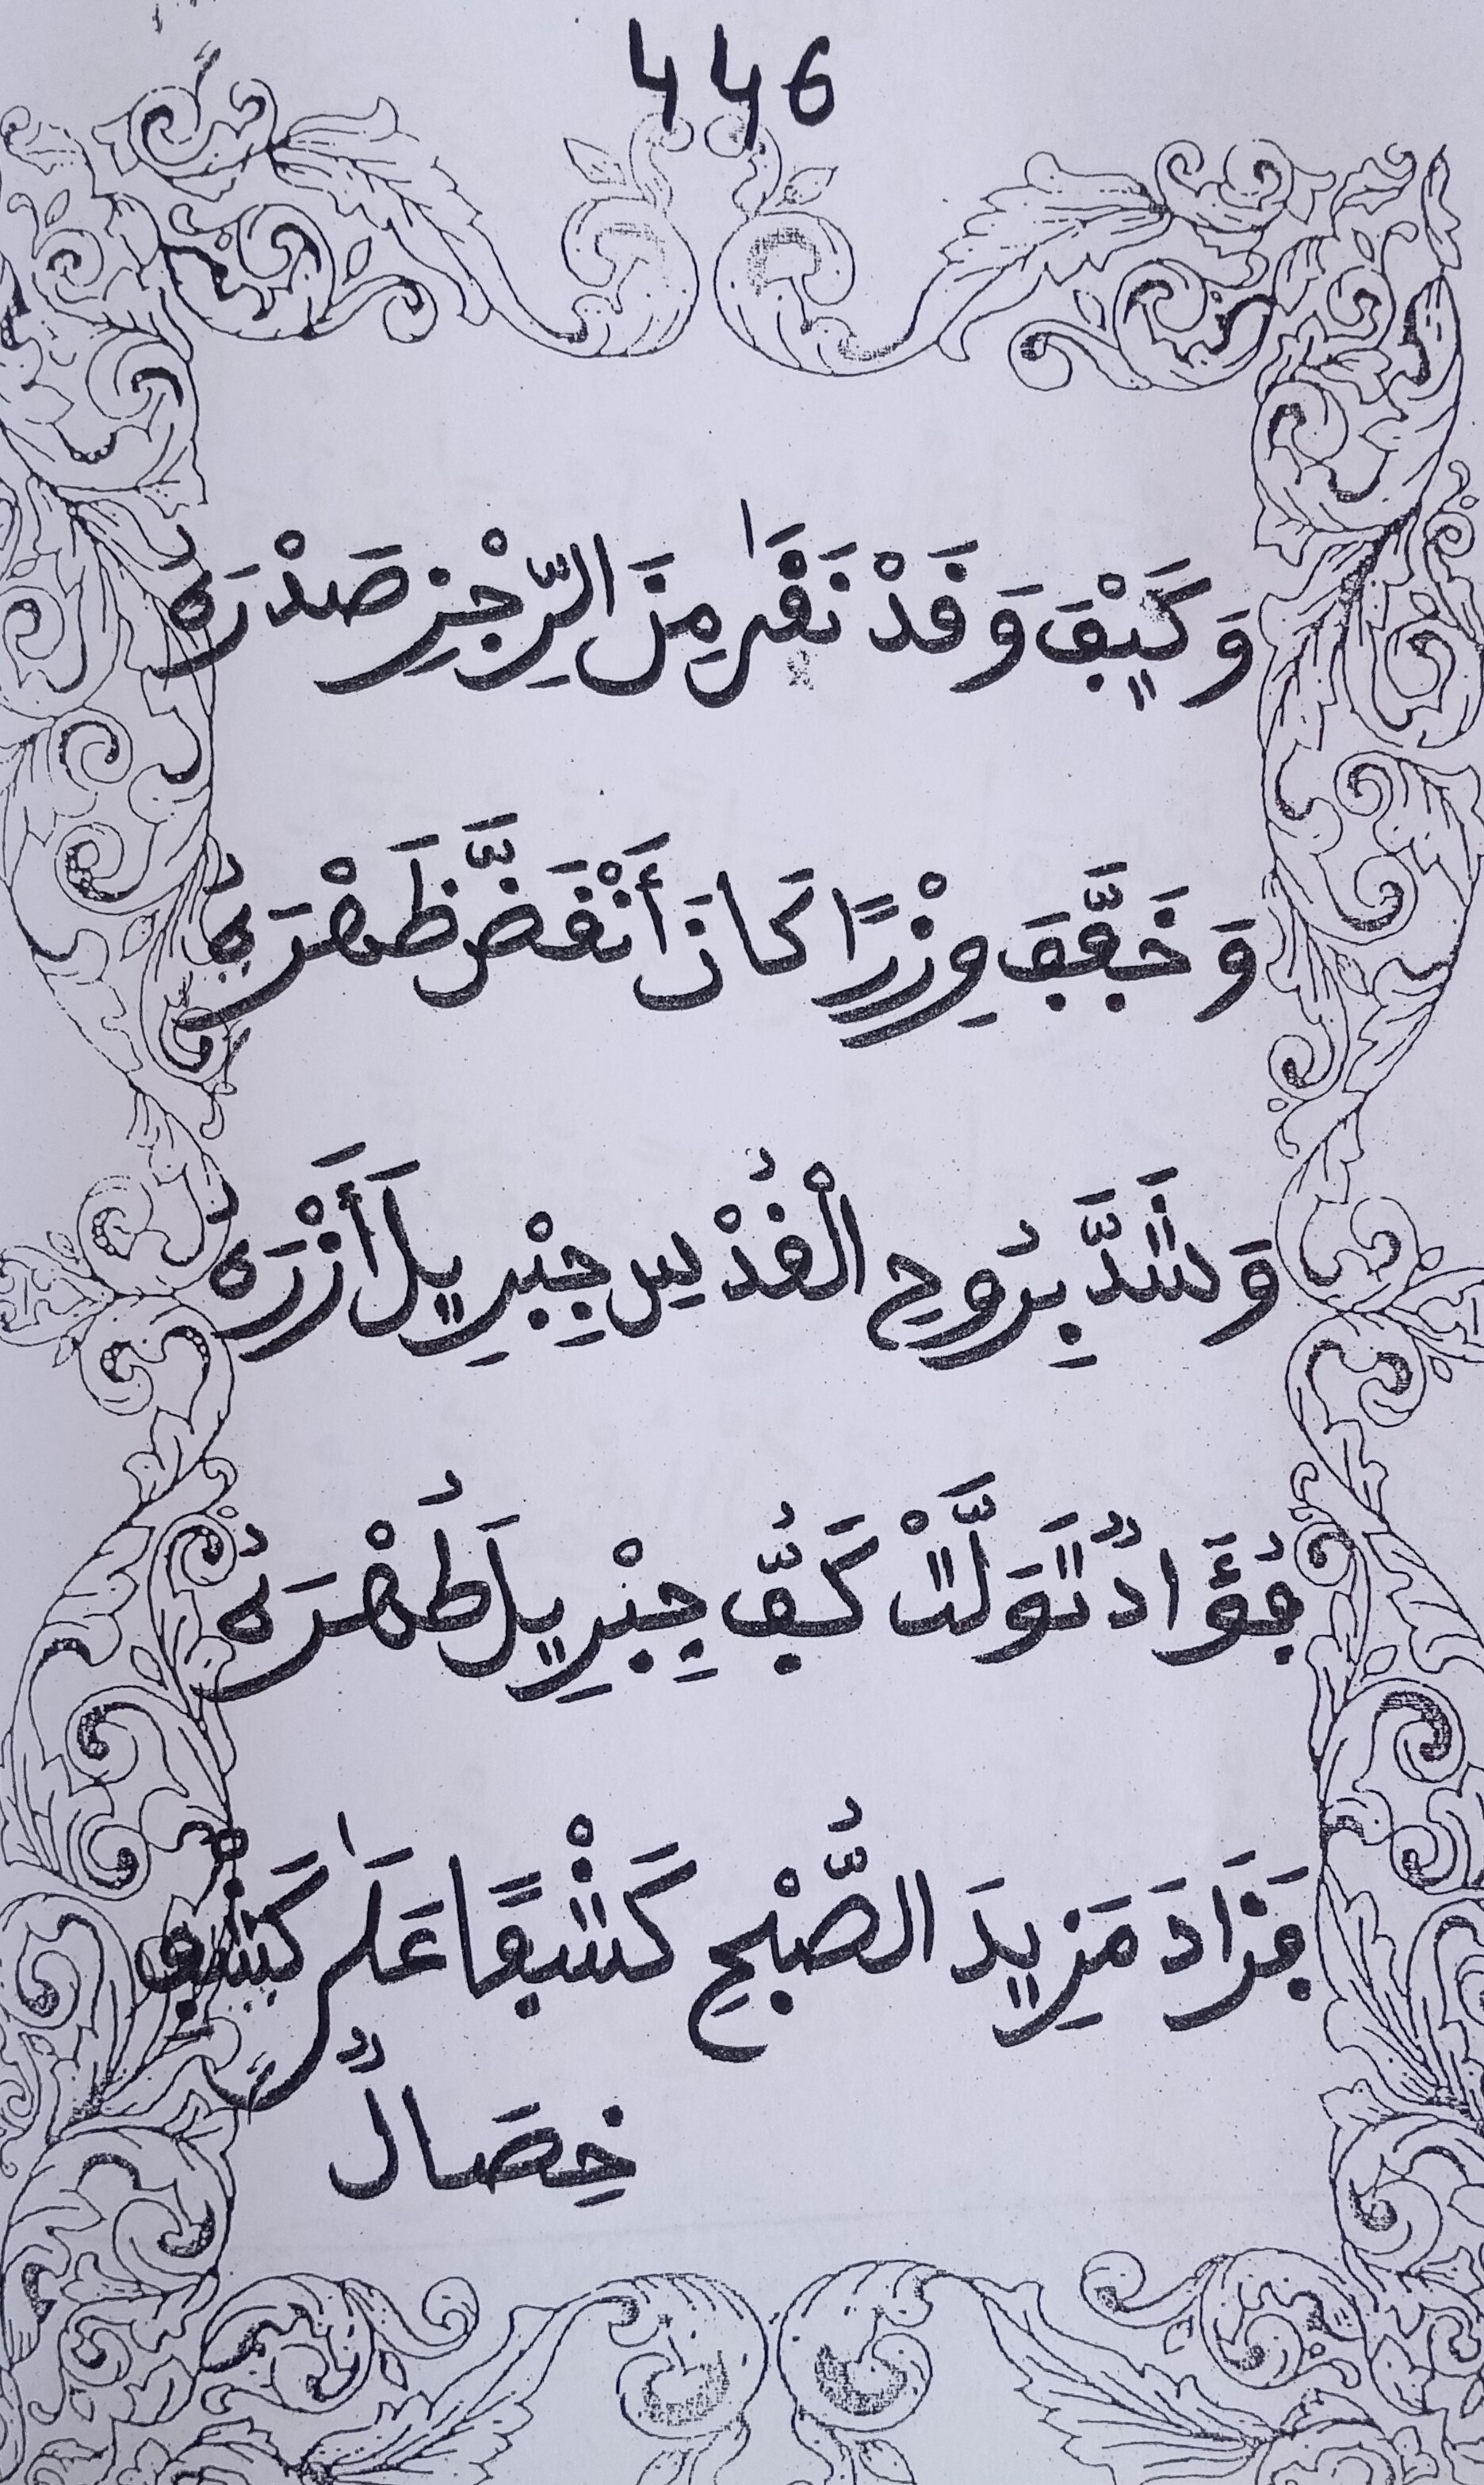 446
وَكَيْفَ وَقَدْ نَقَىٰ مِنَ الرِّجْزِ صَدْرَهُ
وَخَفَّفَ وِزْرًا كَانَ أَنْقَضَّ ظَهْرَهُ
وَشَدَّ بِرُوحِ الْقُدْسِ جِبْرِيلَ أَزْرَهُ
فُؤَادٌ تَوَلَّتْ كَفُّ جِبْرِيلَ طُهْرَهُ
فَزَادَ مَزِيدَ الصُّبْحِ كَشْفًا عَلَىٰ كَشْفِ
خِصَالٌ